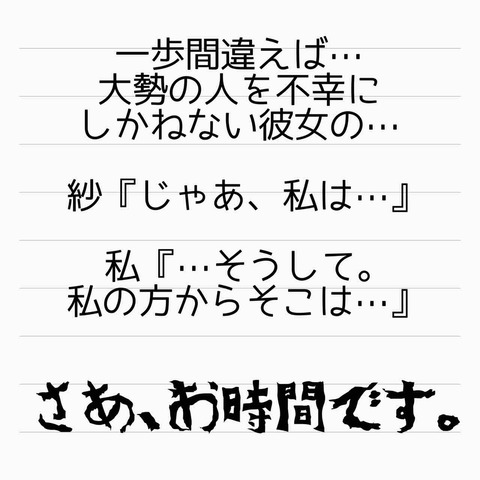 一歩間違えば…
大勢の人を不幸に
しかねない彼女の…
紗『じゃあ、私は…』
私『…そうして。
私の方からそこは…』
さあ、お時間です。